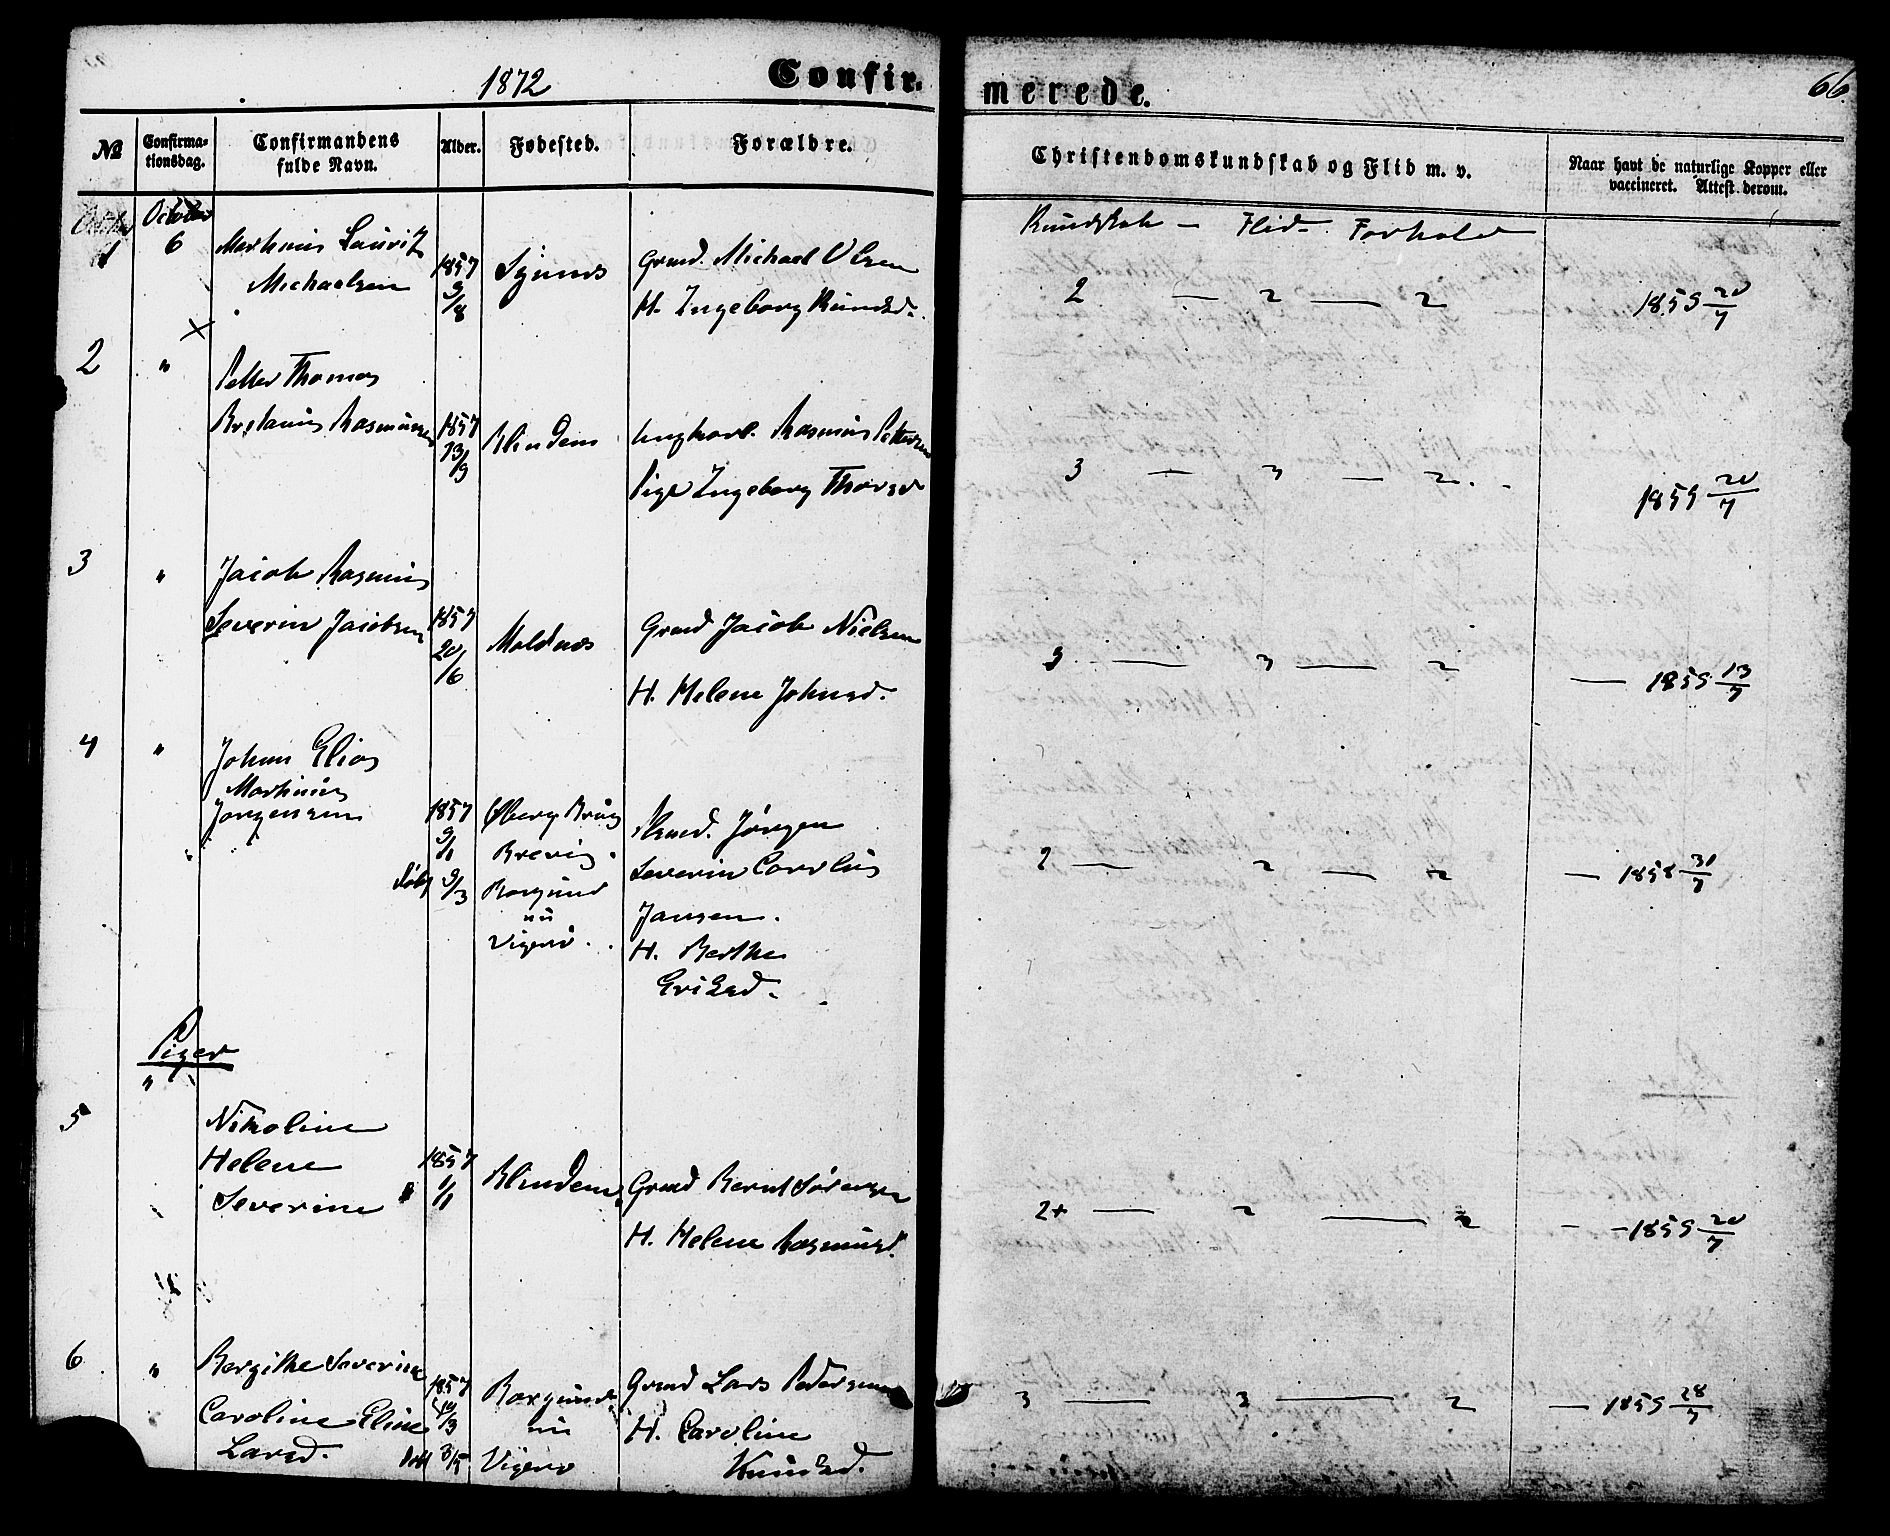 1872
Confir-
merede.
66.
№
Confirma-
tionsdag.
Confirmandens
fulde Navn.
Alder.
Fødested.
Forældre.
Christendomskundskab og Flid m. v.
Naar havt de naturlige Kopper eller
vaccineret. Attest derom.
October
Kundskab — Flid — Forhold
1
6
Marthinus Lauritz
Michaelsen
1857
9/8
Gmd. Michael Olsen
H. Ingeborg Knudsd.
2 — 2 — 2
1859 20/7
2
"
Petter Thomas
Rasmussen
1857
13/9
Blindem
Ungkarl. Rasmus Pettersen
Pige Ingeborg Thorsd
3 — 3 — 2.
1859 20/7
3
"
Jacob Rasmus
Severin Jacobsen
1857
20/6
Moldnæs
Gmd Jacob Nielsen
H. Helene Johnsd.
3 — 3 — 2
— 1859 13/7
4
"
Johan Elias
Marthinus
Jørgensen
1857
9/1
døbt 9/3
Brevig.
Borgund
nu
Vigerø.
Jørgen
Severin Carolus
Jansen.
H. Berthe
Eriksd.
2 — 2 — 2
— 1858 31/7
Piger
"
5
Nikoline
Helene
Severine
1857
1/1
Blindem
Gmd Bernt Sørensen
H. Helene Rasmusd.
2+ — 2 — 2
— 1859 20/7
6
"
Bergithe Severine
Caroline Eline
Larsd.
1857
døbt 3/5
Borgund
nu
Vigerø
Gmd Lars Pedersen
H. Caroline
Knudsd.
3 — 3 — 2
— 1859 28/7